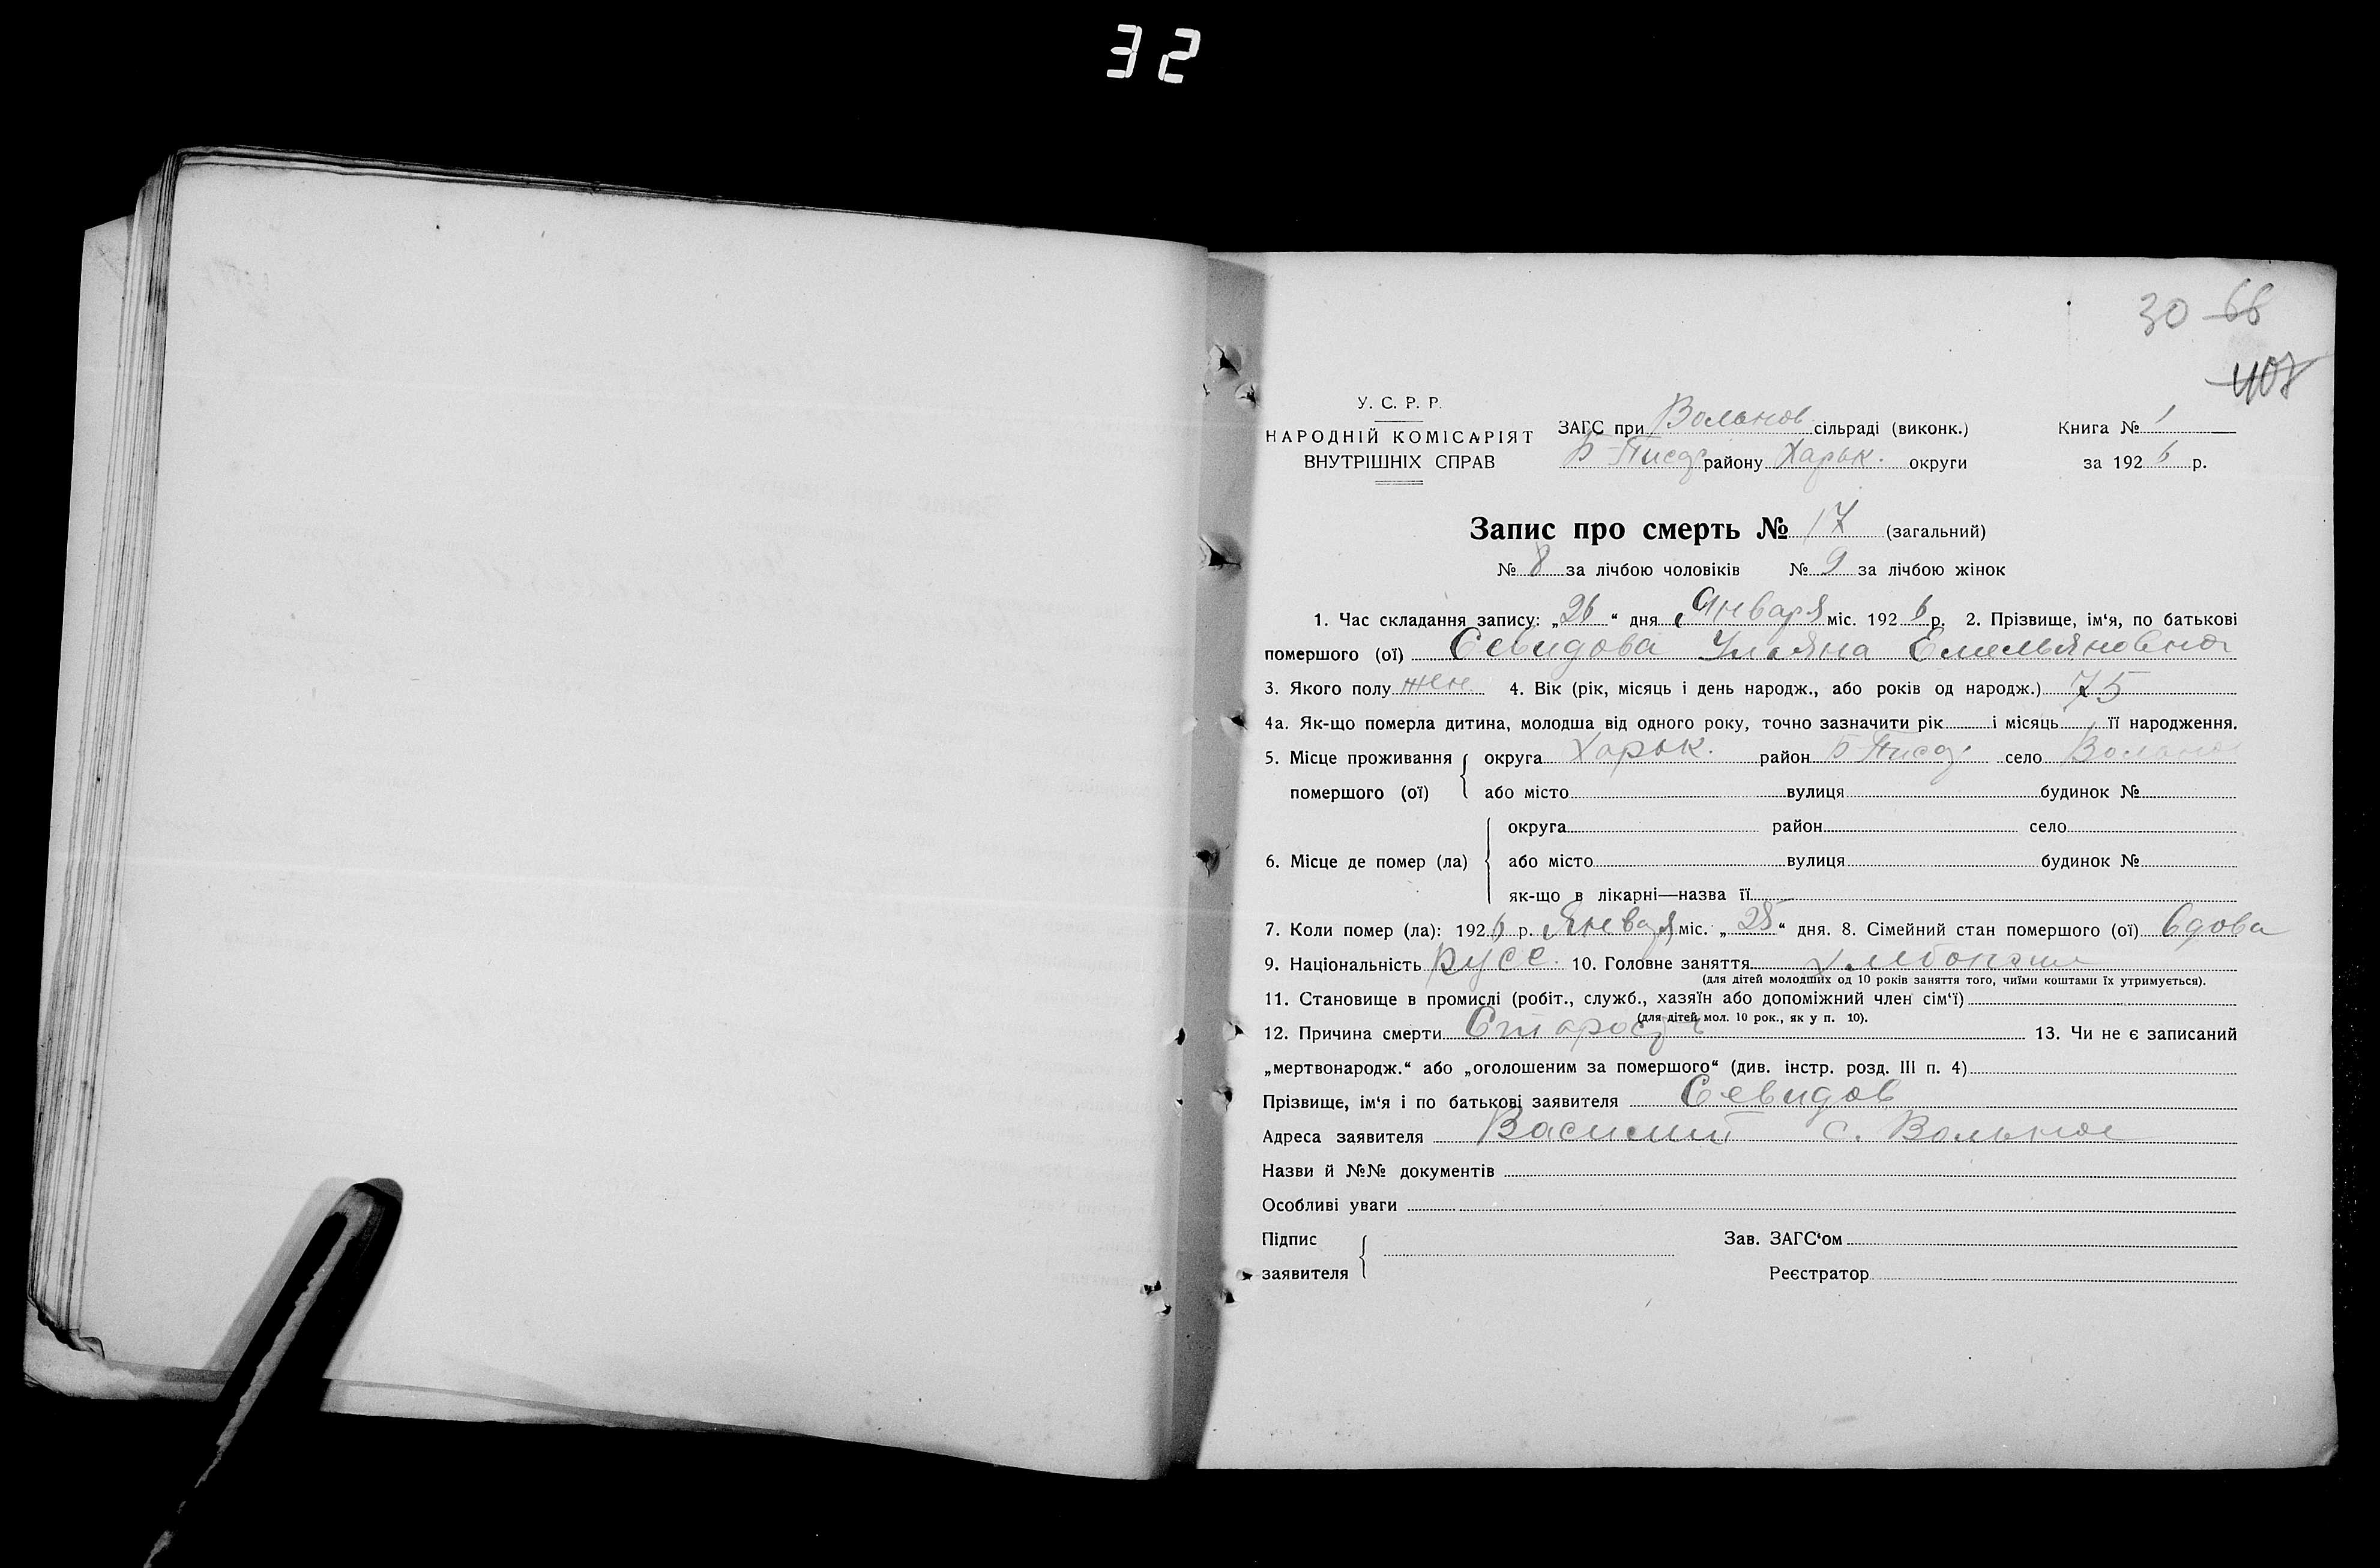 32
30 66
408
У. С. Р. Р.
НАРОДНІЙ КОМІСАРІЯТ
ВНУТРІШНІХ СПРАВ
ЗАГС при Вольнов сільраді (виконк.)
Б Писар району Харьк. округи
Книга № 1
за 1926 р.
Запис про смерть № 17 (загальний)
№ 8 за лічбою чоловіків № 9 за лічбою жінок
1. Час складання запису: „26“ дня Января міс. 1926 р. 2. Прізвище, ім‘я, по батькові
помершого (ої) Севидова Ульяна Емельяновна
3. Якого полу жен 4. Вік (рік, місяць і день народж., або років од народж.) 75
4а. Як-що померла дитина, молодша від одного року, точно зазначити рік і місяць її народження.
5. Місце проживання помершого (ої) округа Харьк. район Б Писар село Вольное
або місто вулиця будинок №
6. Місце де помер (ла) округа район село
або місто вулиця будинок №
як-що в лікарні—назва її
7. Коли помер (ла): 1926 р. Января міс. „25“ дня. 8. Сімейний стан помершого (ої) вдова
9. Національність русс. 10. Головне заняття хлебопаш
(для дітей молодших од 10 років заняття того, чиїми коштами їх утримується).
11. Становище в промислі (робіт., служб., хазяїн або допоміжний член сім‘ї)
(для дітей мол. 10 рок., як у п. 10).
12. Причина смерти Старость 13. Чи не є записаний
„мертвонародж.“ або „оголошеним за помершого“ (див. інстр. розд. III п. 4)
Прізвище, ім‘я і по батькові заявителя Севидов
Адреса заявителя Василий с. Вольное
Назви й №№ документів
Особливі уваги
Підпис заявителя
Зав. ЗАГС‘ом
Реєстратор